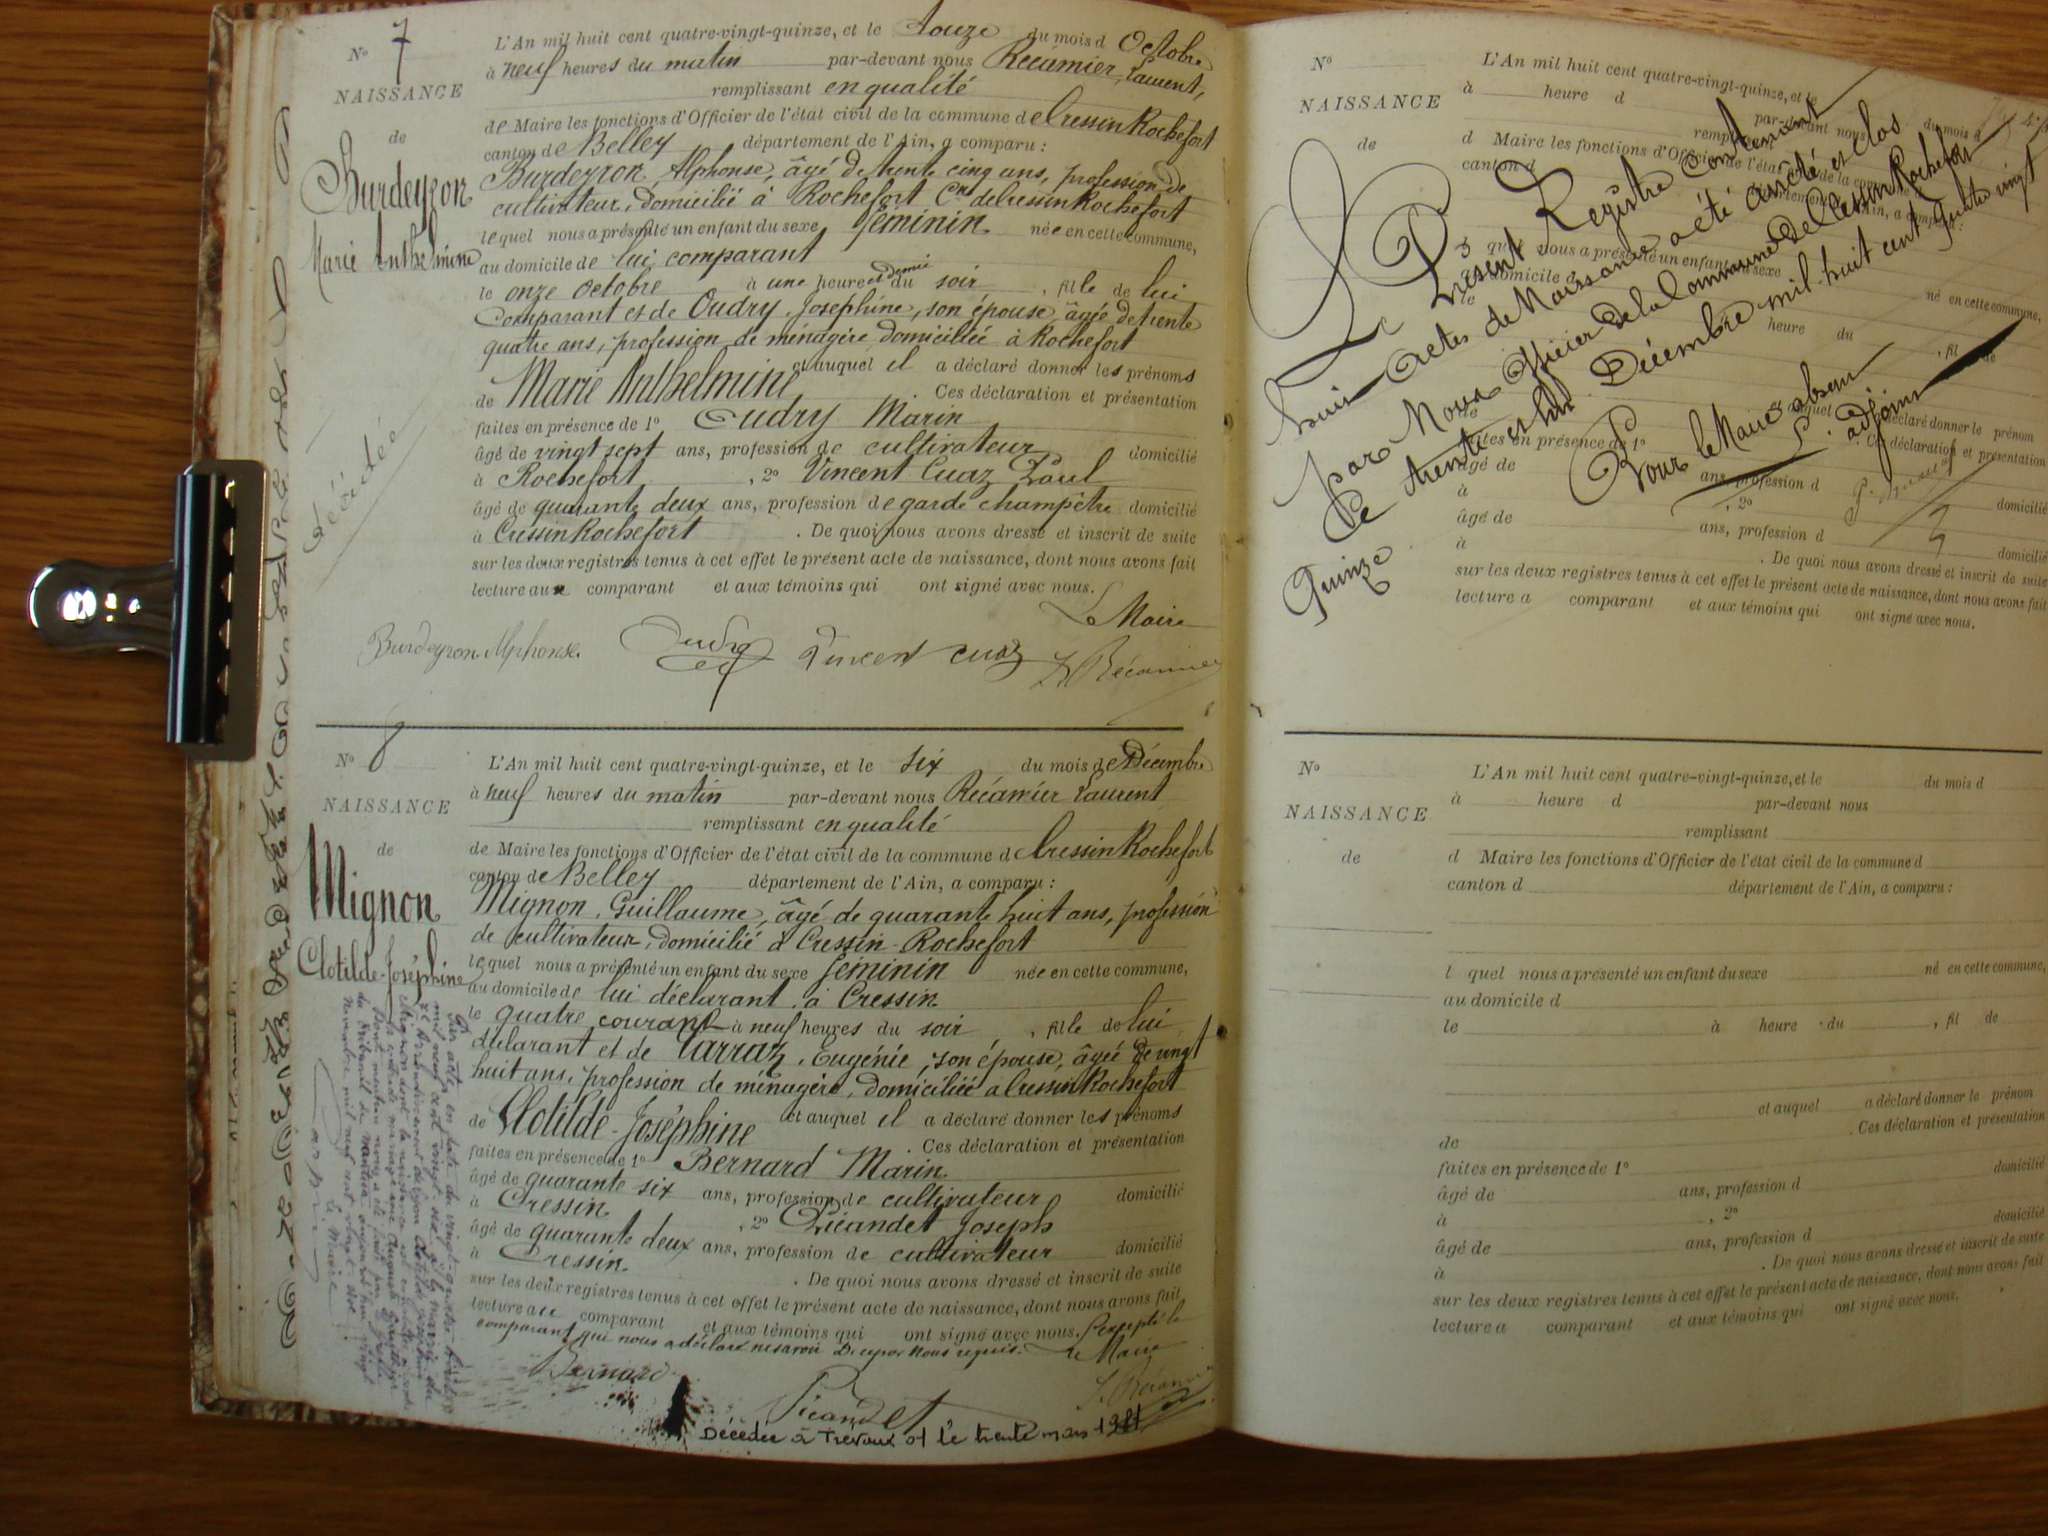 N° 7
NAISSANCE
de
Burdeyron
Marie Anthelmine
Décédée
L'An mil huit cent quatre-vingt-quinze, et le douze du mois d Octobre
à neuf heures du matin par-devant nous Récamier, Laurent,
remplissant en qualité
de Maire les fonctions d'Officier de l'état civil de la commune de Cressin Rochefort
canton de Belley département de l'Ain, a comparu :
Burdeyron, Alphonse, âgé de trente cinq ans, profession de
cultivateur, domicilié à Rochefort Cne de Cressin Rochefort
lequel nous a présenté un enfant du sexe féminin née en cette commune,
au domicile de lui comparant
le onze octobre à une heure et demie du soir, fille de lui
Comparant et de Oudry, Joséphine, son épouse, âgée de trente
quatre ans, profession de ménagère domiciliée à Rochefort
et auquel il a déclaré donner les prénoms
de Marie Anthelmine Ces déclaration et présentation
faites en présence de 1° Oudry Marin
âgé de vingt sept ans, profession de cultivateur domicilié
à Rochefort, 2° Vincent Cuaz Paul
âgé de quarante deux ans, profession de garde champêtre domicilié
à Cressin Rochefort. De quoi nous avons dressé et inscrit de suite
sur les deux registres tenus à cet effet le présent acte de naissance, dont nous avons fait
lecture au comparant et aux témoins qui ont signé avec nous.
Le Maire
Burdeyron Alphonse. Oudry Vincent Cuaz L. Récamier
N° 8
NAISSANCE
de
Mignon
Clotilde-Joséphine
L'An mil huit cent quatre-vingt-quinze, et le six du mois de Décembre
à neuf heures du matin par-devant nous Récamier Laurent
remplissant en qualité
de Maire les fonctions d'Officier de l'état civil de la commune d Cressin Rochefort
canton de Belley département de l'Ain, a comparu :
Mignon, Guillaume, âgé de quarante huit ans, profession
de cultivateur, domicilié à Cressin-Rochefort
lequel nous a présenté un enfant du sexe féminin née en cette commune,
au domicile de lui déclarant, à Cressin
le quatre courant à neuf heures du soir, fille de lui
déclarant et de Tarraz, Eugénie, son épouse, âgée de vingt
huit ans, profession de ménagère, domiciliée à Cressin Rochefort
et auquel il a déclaré donner les prénoms
de Clotilde-Joséphine. Ces déclaration et présentation
faites en présence de 1° Bernard Marin
âgé de quarante six ans, profession de cultivateur domicilié
à Cressin, 2° Picandet Joseph
âgé de quarante deux ans, profession de cultivateur domicilié
à Cressin. De quoi nous avons dressé et inscrit de suite
sur les deux registres tenus à cet effet le présent acte de naissance, dont nous avons fait
lecture au comparant et aux témoins qui ont signé avec nous. excepté le
comparant qui nous a déclaré ne savoir de ce par nous requis. Le Maire
Bernard
Picandet L. Récamier
Décédée à Trévoux 01 le trente mars
Le Présent Registre contenant
huit Actes de Naissance a été arrêté et clos
par Nous Officier de la Commune de Cressin Rochefort
Ce trente et un Décembre mil huit cent quatre vingt
Quinze
Pour le Maire absent
L'adjoint
N°
NAISSANCE
de
L'An mil huit cent quatre-vingt-quinze, et le du mois d
à heure d par-devant nous
remplissant
d Maire les fonctions d'Officier de l'état civil de la commune d
canton d département de l'Ain, a comparu :
l quel nous a présenté un enfant du sexe né en cette commune,
au domicile d
le à heure du , fil de
et auquel a déclaré donner le prénom
de . Ces déclaration et présentation
faites en présence de 1°
âgé de ans, profession d domicilié
à , 2°
âgé de ans, profession d domicilié
à . De quoi nous avons dressé et inscrit de suite
sur les deux registres tenus à cet effet le présent acte de naissance, dont nous avons fait
lecture a comparant et aux témoins qui ont signé avec nous.
N°
NAISSANCE
de
L'An mil huit cent quatre-vingt-quinze, et le du mois d
à heure d par-devant nous
remplissant
d Maire les fonctions d'Officier de l'état civil de la commune d
canton d département de l'Ain, a comparu :
l quel nous a présenté un enfant du sexe né en cette commune,
au domicile d
le à heure du , fil de
et auquel a déclaré donner le prénom
de . Ces déclaration et présentation
faites en présence de 1°
âgé de ans, profession d domicilié
à , 2°
âgé de ans, profession d domicilié
à . De quoi nous avons dressé et inscrit de suite
sur les deux registres tenus à cet effet le présent acte de naissance, dont nous avons fait
lecture a comparant et aux témoins qui ont signé avec nous.